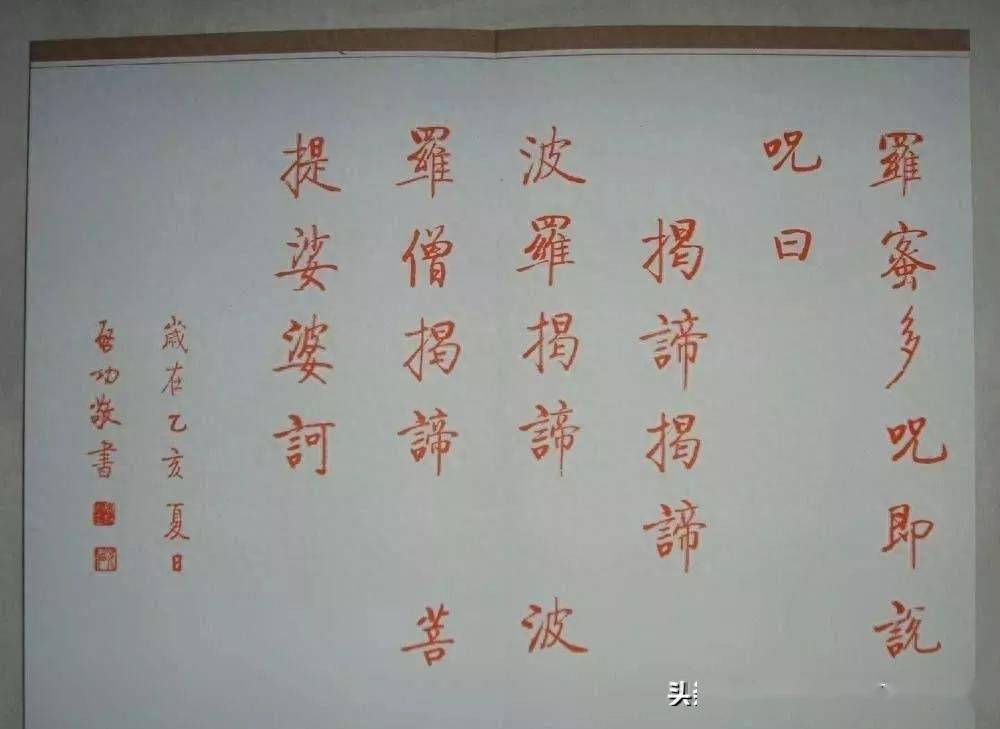 羅蜜多呪即説
呪曰
揭諦揭諦
波羅揭諦 波
羅僧揭諦 菩
提娑婆訶
歲在乙亥夏日
啓功敬書
头